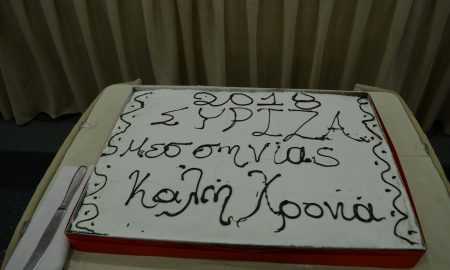 2018
ΣΥΡΙΖΑ
Μεσσηνίας
Καλή Χρονιά